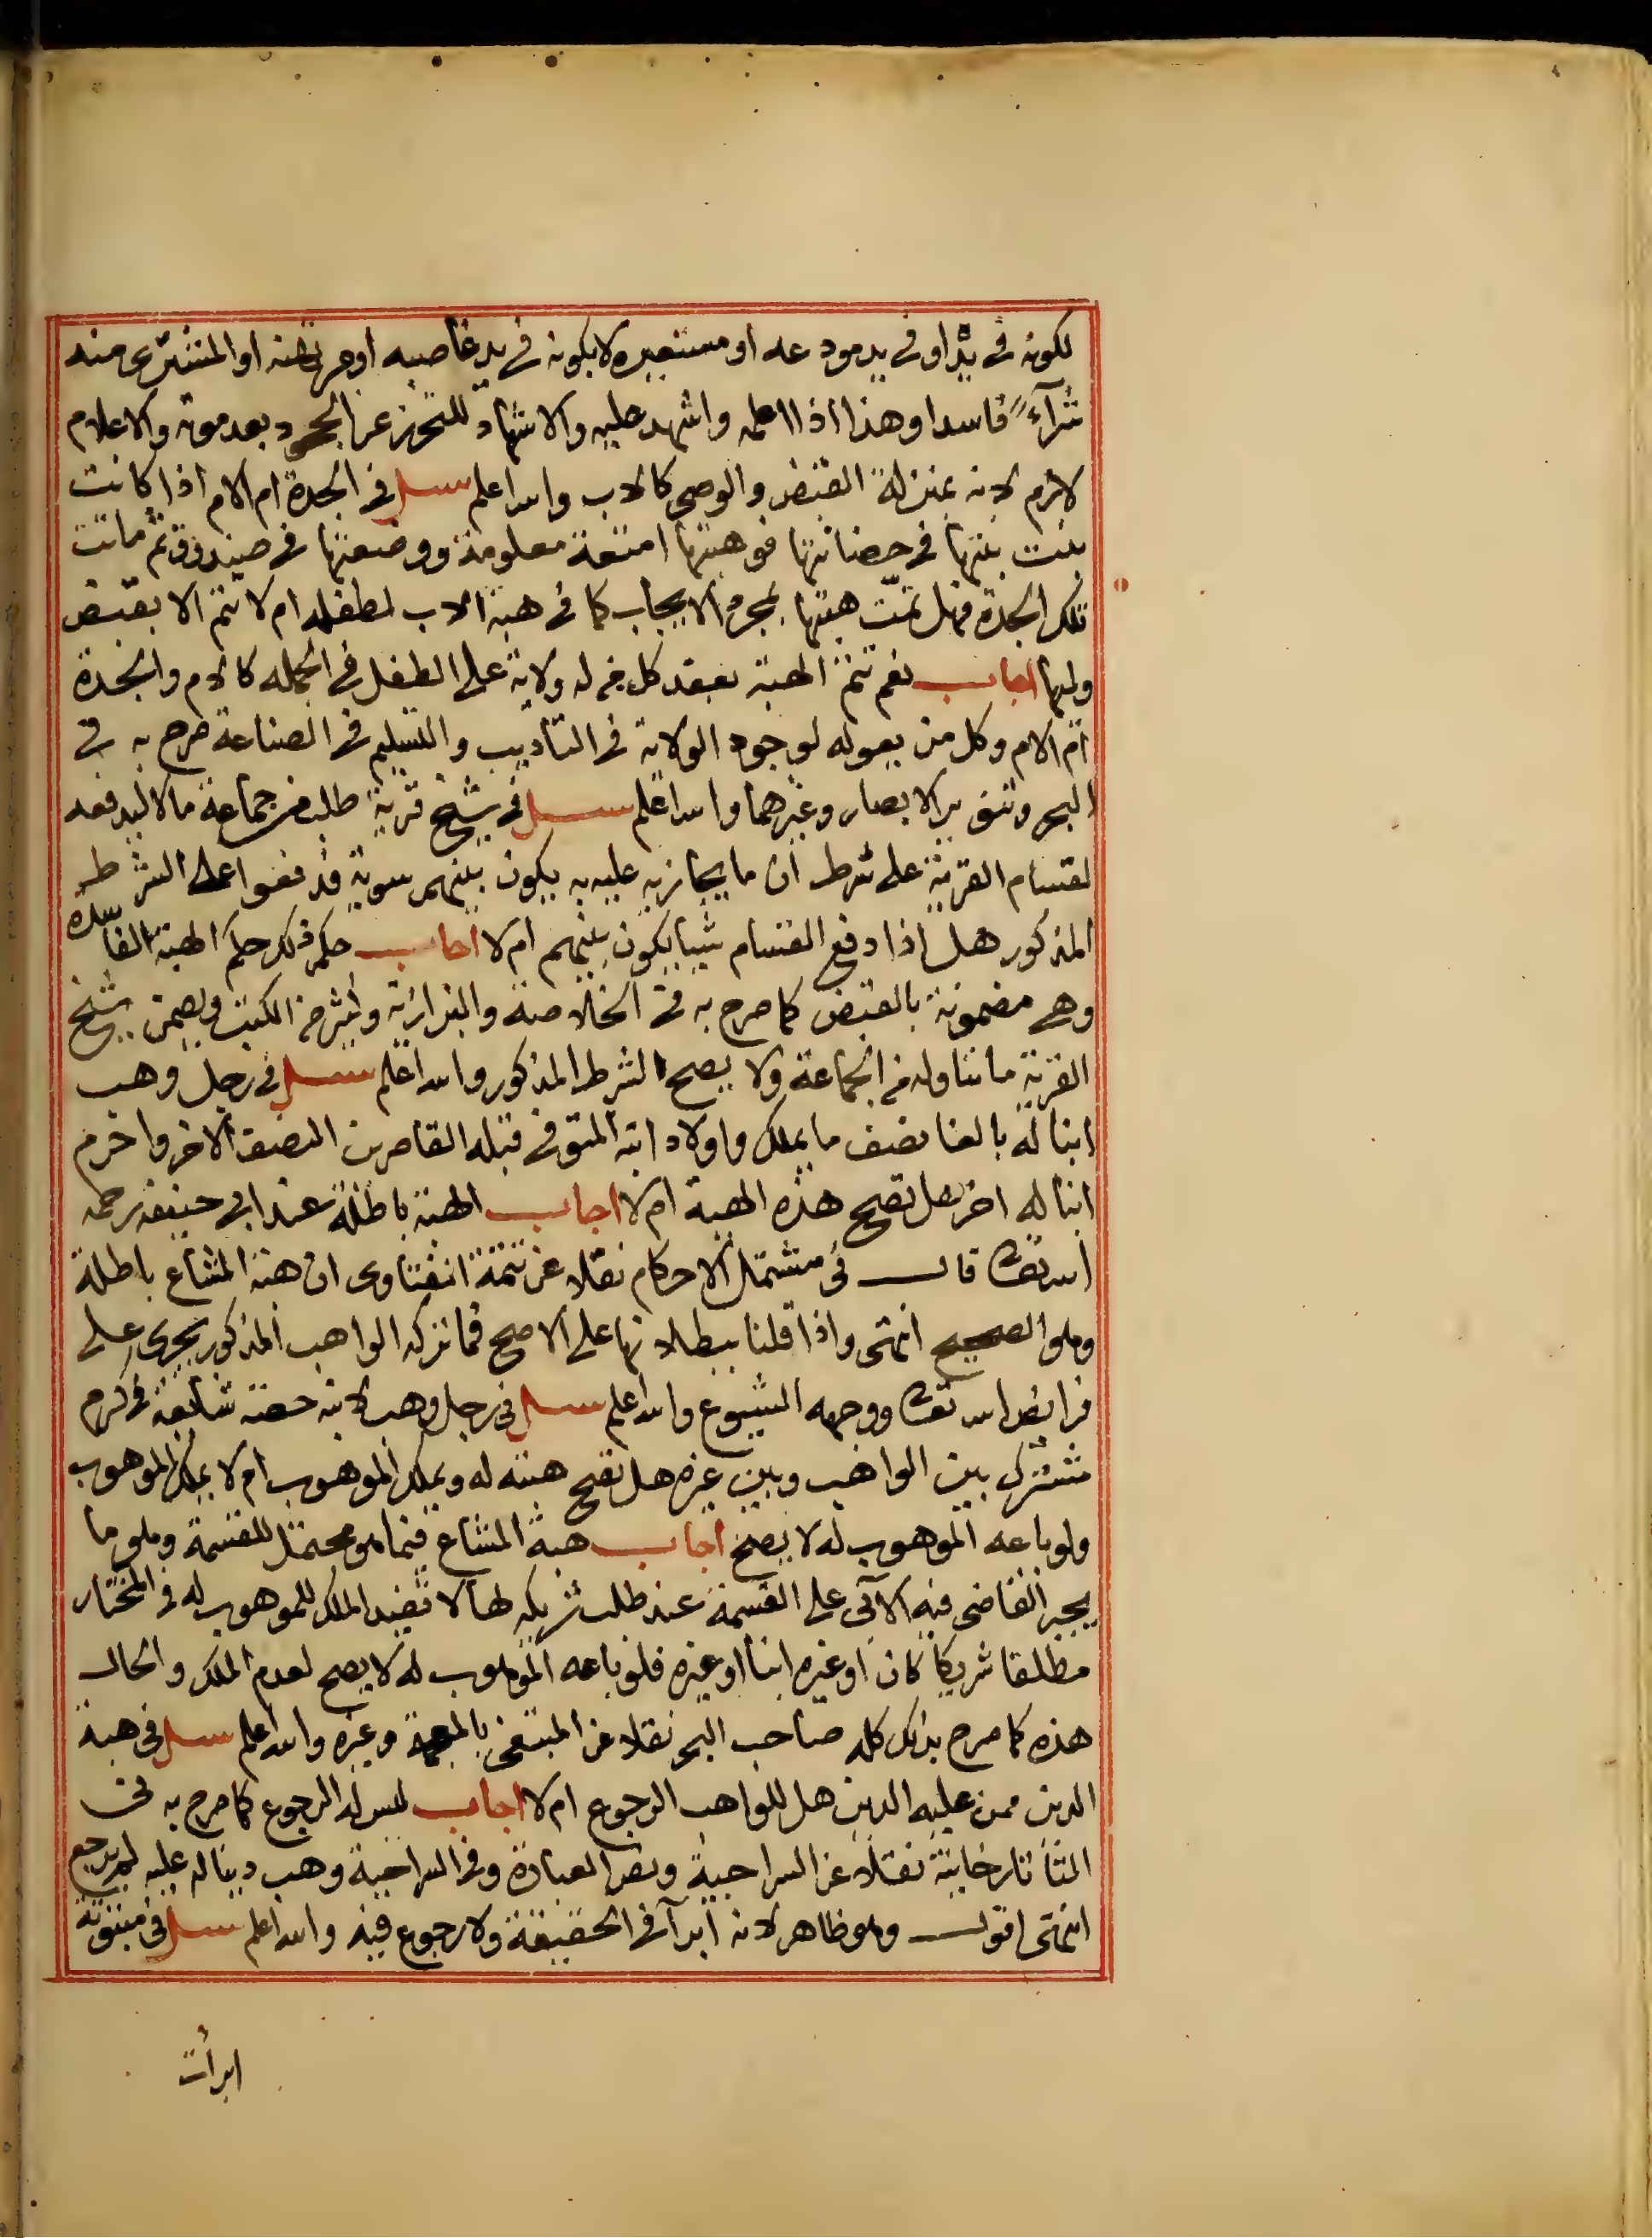 لكونه فى يده او فى يد مودعه او مستعيره لا بكونه فى يد غاصبه او مرتهنه او المشترى منه
شرآءً فاسدا وهذا اذا اعلمه واشهد عليه والاشهاد للتحرز عن الجحود بعد موته والاعلام
لازم لانه بمنزلة القبض والوصى كالاب والله اعلم سئل فى الجدة ام الام اذا كانت
بنت بنتها فى حضانتها فوهبتها امتعة معلومة ووضعتها فى صندوق ثم ماتت
تلك الجدة فهل تمّت هبتها بمجرد الايجاب كما فى هبة الاب لطفله ام لا تتم الا بقبض
وليها اجاب نعم تتم الهبة بعقد كل من له ولاية على الطفل فى الجمله كالام والجدة
ام الام وكل من يعوله لوجود الولاية فى التأديب والتسليم فى الصناعة صرح به فى
البحر وتنوير الابصار وغيرهما والله اعلم سئل فى شيخ قرية طلب من جماعة مالا ليدفعه
لقسام القرية على شرط ان ما يجازيه عليه به يكون بينهم سوية فدفعوا على الشرط
المذكور هل اذا دفع القسام شيا يكون بينهم ام لا اجاب حكم ذلك حكم الهبة الفاسدة
وهى مضمونة بالقبض كما صرح به فى الخلاصة والبزازية وكثير من الكتب فيضمن شيخ
القرية ما تناوله من الجماعة ولا يصح الشرط المذكور والله اعلم سئل فى رجل وهب
ابنا له بالغا نصف ما يملك واولاد ابنه المتوفى قبله القاصرين النصف الاخر واحرم
ابنا له اخر هل تصح هذه الهبة ام لا اجاب الهبة باطلة عند ابى حنيفه رحمه
الله تعالى قال فى مشتمل الاحكام نقلا عن تتمة الفتاوى ان هبة المشاع باطلة
وهو الصحيح انتهى واذا قلنا ببطلانها على الاصح فما تركه الواهب المذكور يجرى على
فرايض الله تعالى ووجهه الشيوع والله اعلم سئل فى رجل وهب لابنه حصة شايعة فى كرم
مشترك بين الواهب وبين غيره هل تصح هبته له ويملك الموهوب ام لا يملك الموهوب
ولو باعه الموهوب له لا يصح اجاب هبة المشاع فيما هو محتمل للقسمة وهو ما
يجبر القاضى فيه الآبى على القسمة عند طلب شريكه لها لا تفيد الملك للموهوب له فى المختار
مطلقا شريكا كان او غيره ابنا او غيره فلو باعه الموهوب له لا يصح لعدم الملك والحال
هذه كما صرح بذلك كله صاحب البحر نقلا عن المبتغى بالمعجمة وغيره والله اعلم سئل فى هبة
الدين ممن عليه الدين هل للواهب الرجوع ام لا اجاب ليس له الرجوع كما صرح به فى
التاتارخانية نقلا عن السراجية ونص العبارة وفى السراجية وهب دينا له عليه لم يرجع
انتهى اقول وهو ظاهر لانه ابرآء فى الحقيقة ولا رجوع فيه والله اعلم سئل فى مبتوتة
ابرأت